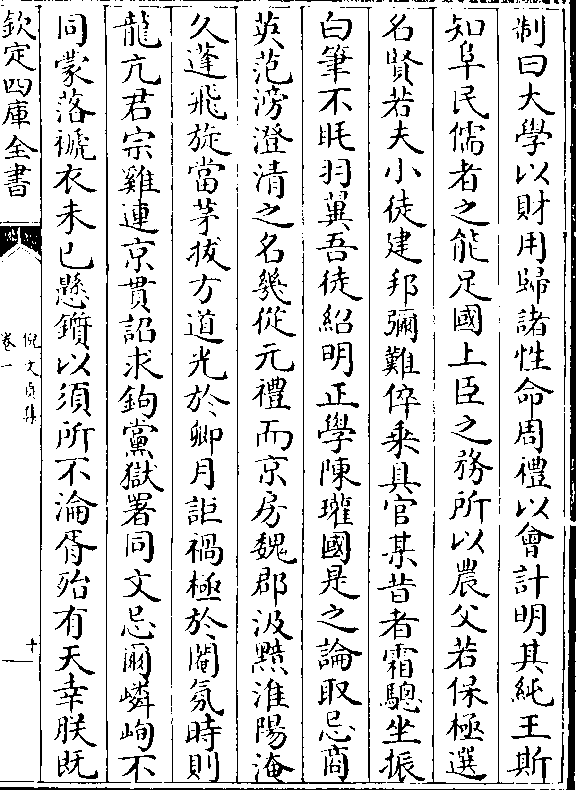 制曰大學以財用歸諸性命周禮以會計明其純王斯
知阜民儒者之能足國上臣之務所以農父若保極選
名賢若夫小徒建邦彌難倅乘具官某昔者霜驄坐振
白筆不眊羽翼吾徒紹明正學陳瓘國是之論取忌商
英范滂澄清之名幾從元禮而京房魏郡汲黯淮陽淹
久蓬飛旋當茅拔方道光於卿月詎禍極於閹氛時則
龍亢君宗雞連京貫詔求鉤黨獄署同文忌爾嶙峋不
同蒙落褫衣未已懸鑕以須所不淪胥殆有天幸朕既
欽定四庫全書
倪文貞集
卷一
十